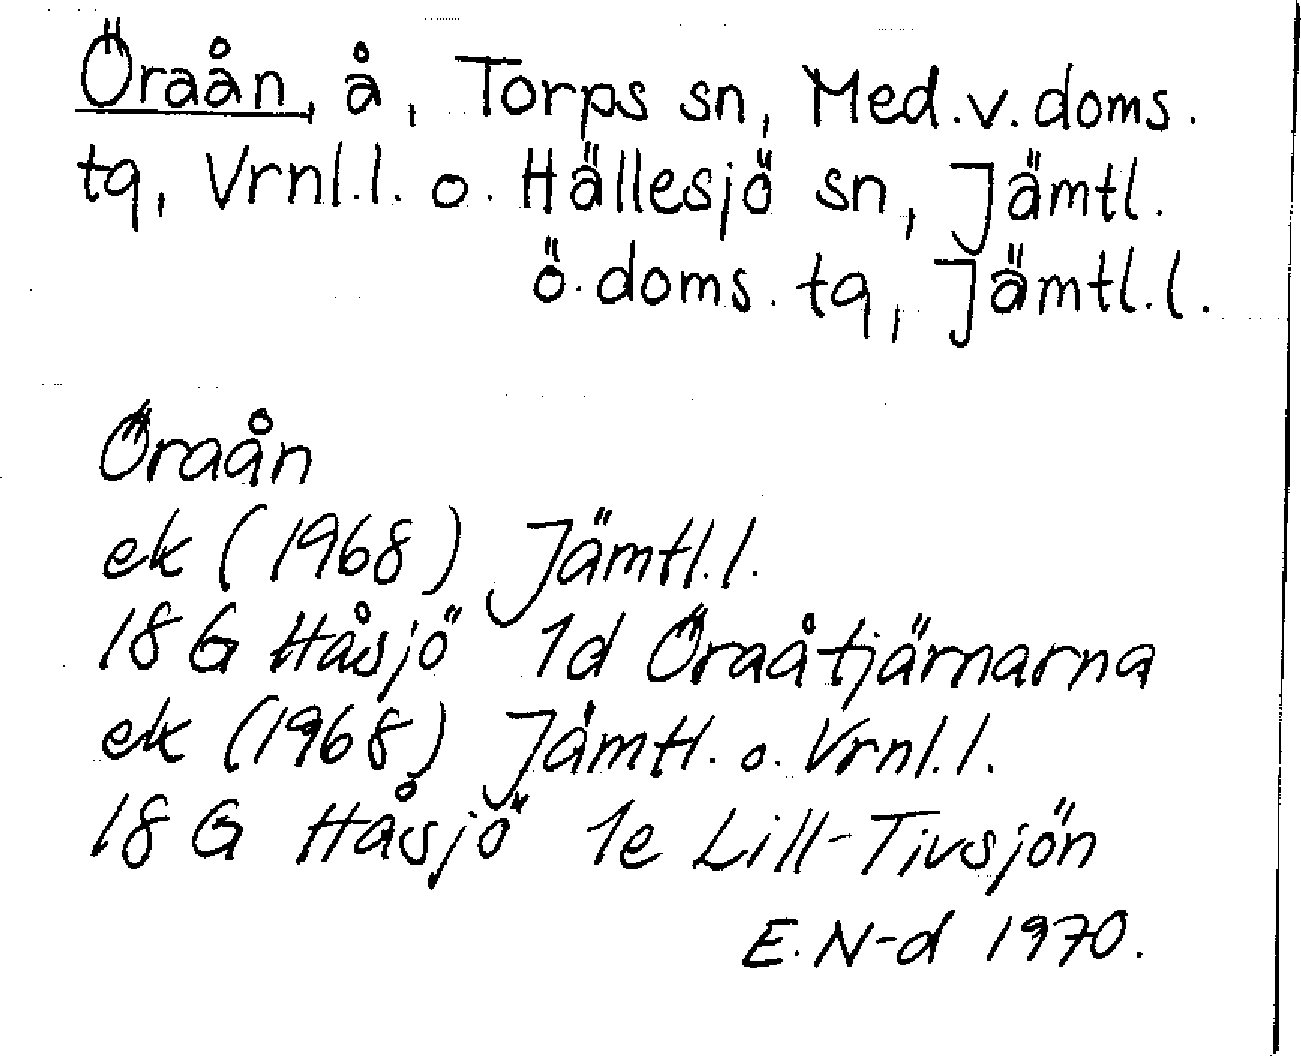 Öraån, å, Torps sn, Med.v.doms.
tg, Vrnl.l. o. Hällesjö sn, Jämtl.
ö.doms.tg, Jämtl.l.
Öraån
ek (1968) Jämtl.l.
18 G Håsjö 1d Öraåtjärnarna
ek (1968) Jämtl. o. Vrnl.l.
18 G Håsjö 1e Lill-Tivsjön
E.N-d 1970.